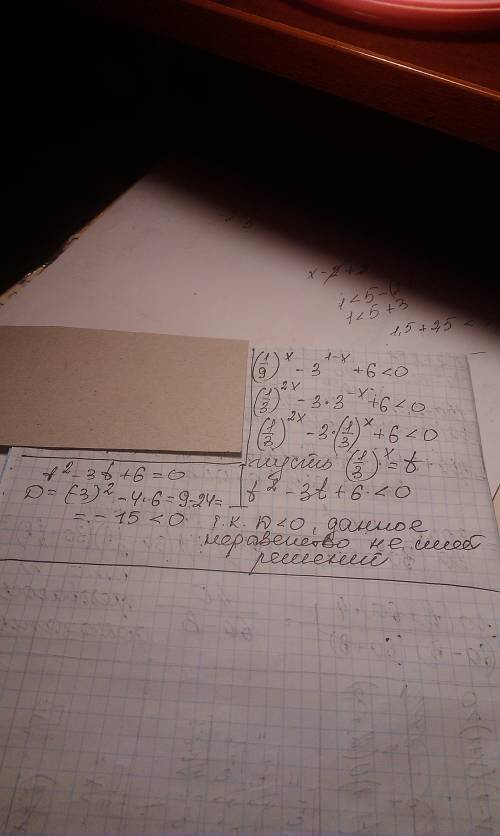 x-2+
1<5-
1<5+3
1,5+2,5<
(1/9)^x - 3^(1-x) + 6 < 0
(1/3)^(2x) - 3·3^(-x) + 6 < 0
(1/3)^(2x) - 3·(1/3)^x + 6 < 0
пусть (1/3)^x = t
t² - 3t + 6 < 0
t² - 3t + 6 = 0
D = (-3)² - 4·6 = 9-24 =
= -15 < 0
т.к. D<0, данное
неравенство не имеет
решений